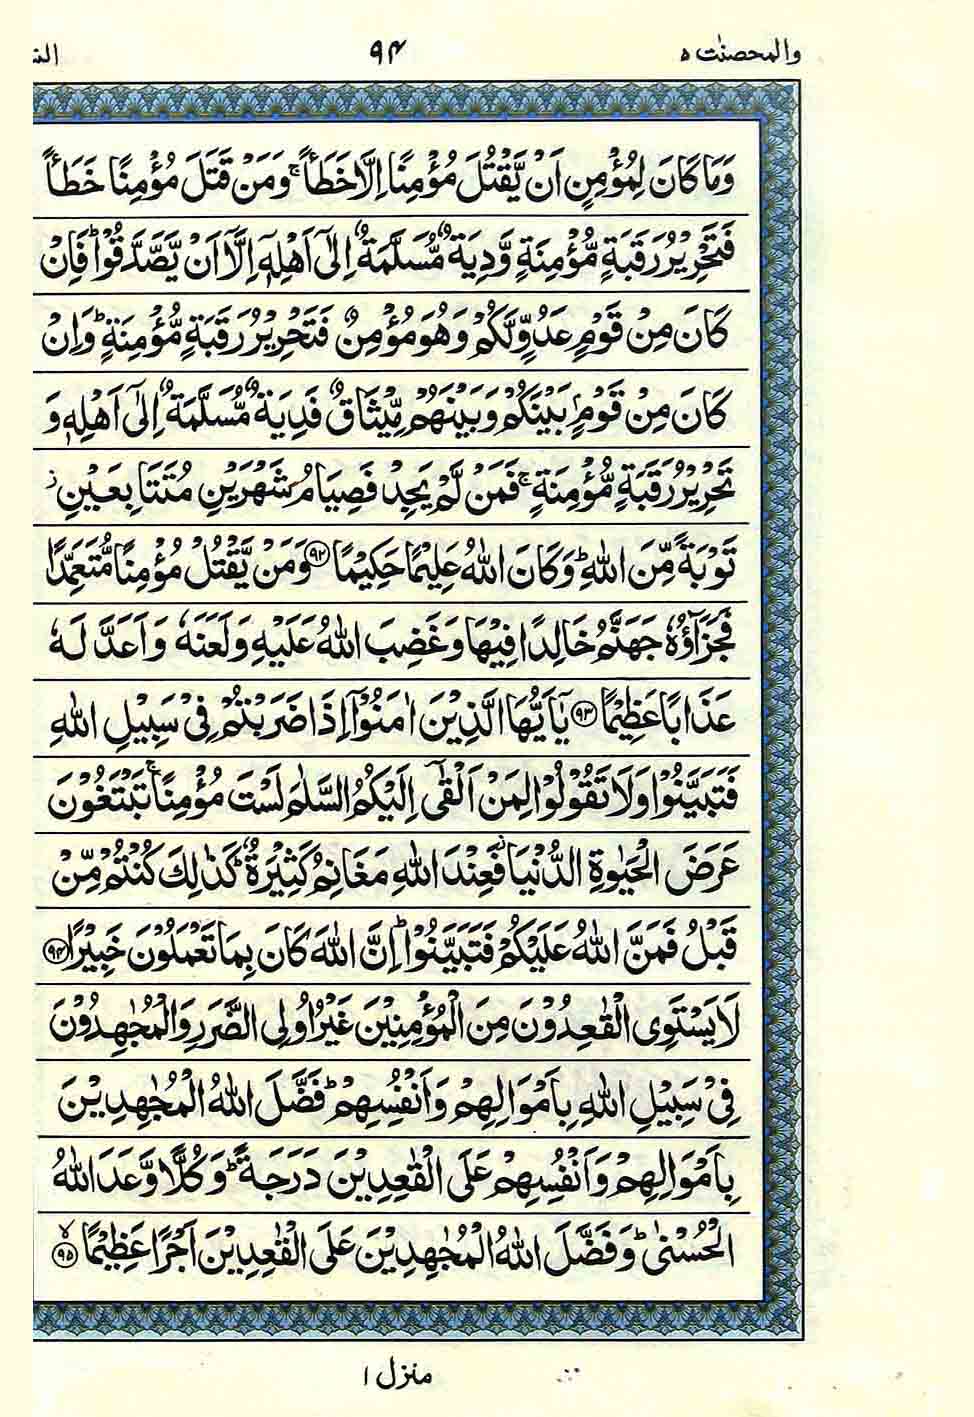 والمحصنت ۵
۹۴
النس
وَمَا كَانَ لِمُؤْمِنٍ اَنْ يَّقْتُلَ مُؤْمِنًا اِلَّا خَطَـًٔا ۚ وَمَنْ قَتَلَ مُؤْمِنًا خَطَـًٔا
فَتَحْرِيْرُ رَقَبَةٍ مُّؤْمِنَةٍ وَّدِيَةٌ مُّسَلَّمَةٌ اِلٰٓى اَهْلِهٖٓ اِلَّآ اَنْ يَّصَّدَّقُوْا ؕ فَاِنْ
كَانَ مِنْ قَوْمٍ عَدُوٍّ لَّكُمْ وَهُوَ مُؤْمِنٌ فَتَحْرِيْرُ رَقَبَةٍ مُّؤْمِنَةٍ ؕ وَاِنْ
كَانَ مِنْ قَوْمٍۭ بَيْنَكُمْ وَبَيْنَهُمْ مِّيْثَاقٌ فَدِيَةٌ مُّسَلَّمَةٌ اِلٰٓى اَهْلِهٖ وَ
تَحْرِيْرُ رَقَبَةٍ مُّؤْمِنَةٍ ۚ فَمَنْ لَّمْ يَجِدْ فَصِيَامُ شَهْرَيْنِ مُتَتَابِعَيْنِ ز
تَوْبَةً مِّنَ اللّٰهِ ؕ وَكَانَ اللّٰهُ عَلِيْمًا حَكِيْمًا ﴿۹۲﴾ وَمَنْ يَّقْتُلْ مُؤْمِنًا مُّتَعَمِّدًا
فَجَزَآؤُهٗ جَهَنَّمُ خَالِدًا فِيْهَا وَغَضِبَ اللّٰهُ عَلَيْهِ وَلَعَنَهٗ وَاَعَدَّ لَهٗ
عَذَابًا عَظِيْمًا ﴿۹۳﴾ يٰٓاَيُّهَا الَّذِيْنَ اٰمَنُوْٓا اِذَا ضَرَبْتُمْ فِيْ سَبِيْلِ اللّٰهِ
فَتَبَيَّنُوْا وَلَا تَقُوْلُوْا لِمَنْ اَلْقٰٓى اِلَيْكُمُ السَّلٰمَ لَسْتَ مُؤْمِنًا ۚ تَبْتَغُوْنَ
عَرَضَ الْحَيٰوةِ الدُّنْيَا ز فَعِنْدَ اللّٰهِ مَغَانِمُ كَثِيْرَةٌ ؕ كَذٰلِكَ كُنْتُمْ مِّنْ
قَبْلُ فَمَنَّ اللّٰهُ عَلَيْكُمْ فَتَبَيَّنُوْا ؕ اِنَّ اللّٰهَ كَانَ بِمَا تَعْمَلُوْنَ خَبِيْرًا ﴿۹۴﴾
لَا يَسْتَوِى الْقٰعِدُوْنَ مِنَ الْمُؤْمِنِيْنَ غَيْرُ اُولِى الضَّرَرِ وَالْمُجٰهِدُوْنَ
فِيْ سَبِيْلِ اللّٰهِ بِاَمْوَالِهِمْ وَاَنْفُسِهِمْ ؕ فَضَّلَ اللّٰهُ الْمُجٰهِدِيْنَ
بِاَمْوَالِهِمْ وَاَنْفُسِهِمْ عَلَى الْقٰعِدِيْنَ دَرَجَةً ؕ وَكُلًّا وَّعَدَ اللّٰهُ
الْحُسْنٰى ؕ وَفَضَّلَ اللّٰهُ الْمُجٰهِدِيْنَ عَلَى الْقٰعِدِيْنَ اَجْرًا عَظِيْمًا ۙ﴿۹۵﴾
منزل ۱